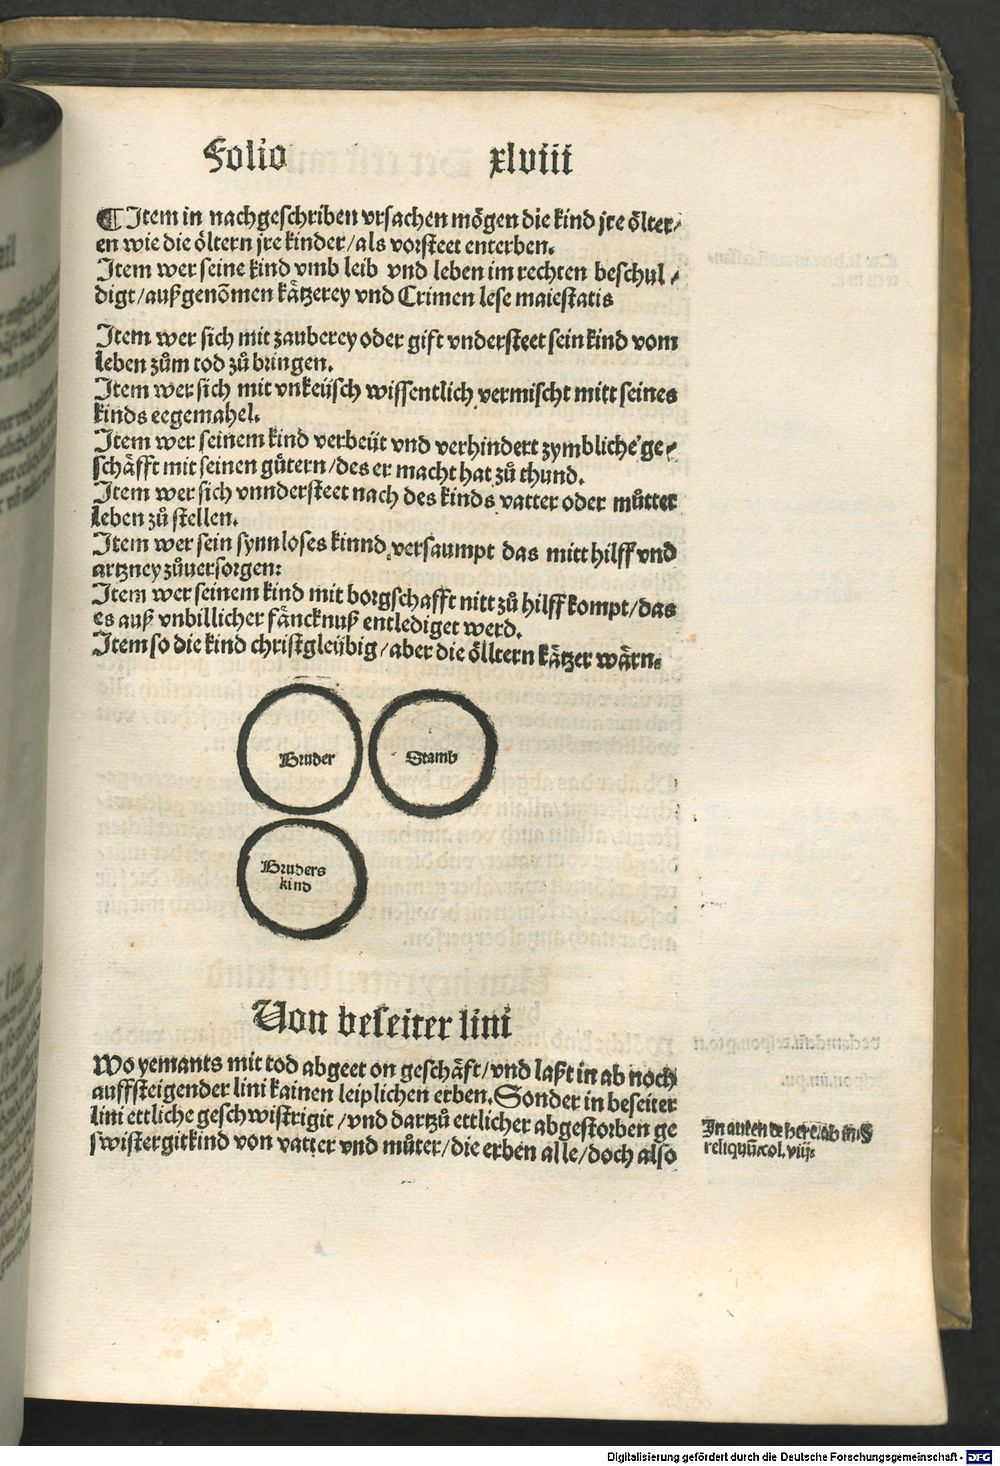 Folio xlviii
¶ Item in nachgeschriben vrsachen mögen die kind jre ölter⸗
en wie die öltern jre kinder/als vorsteet enterben.
Item wer seine kind vmb leib vnd leben im rechten beschul⸗
digt/außgenõmen kätzerey vnd Crimen lese maiestatis
Item wer sich mit zauberey oder gift vndersteet sein kind vom
leben zům tod zů bringen.
Item wer sich mit vnkeüsch wissentlich vermischt mitt seines
kinds eegemahel.
Item wer seinem kind verbeüt vnd verhindert zymbliche ge⸗
schäfft mit seinen gütern/des er macht hat zů thund.
Item wer sich vnndersteet nach des kinds vatter oder můtter
leben zů stellen.
Item wer sein synnloses kinnd versaumpt das mitt hilff vnd
artzney zůuersorgen:
Item wer seinem kind mit borgschafft nitt zů hilff kompt/das
es auß vnbillicher fäncknuß entlediget werd.
Item so die kind christgleübig/aber die ölltern kätzer wärn.
Bruder
Stamb
Bruders
kind
Von beseiter lini
Wo yemants mit tod abgeet on geschäft/vnd laßt in ab noch
auffsteigender lini kainen leiplichen erben. Sonder in beseiter
lini ettliche geschwistrigit/vnd dartzů ettlicher abgestorben ge
swistergitkind von vatter vnd můter/die erben alle/doch also
In auten de here. ab
reliquū. col. viij.
Digitalisierung gefördert durch die Deutsche Forschungsgemeinschaft - DFG